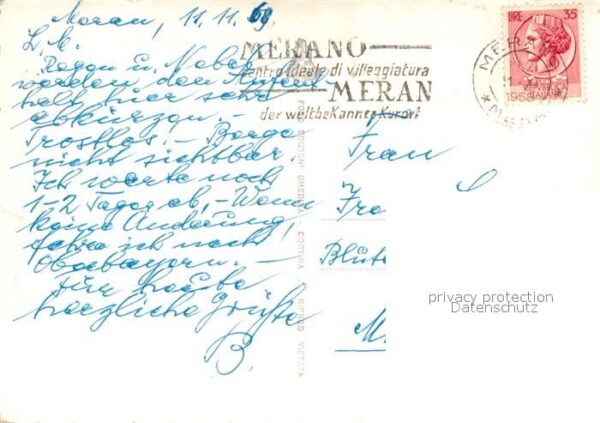 Meran, 11.11.
L. M.
Regen u. Nebel
werden den Aufent
halt hier sehr
abkürzen. –
Trostlos. – Berge
nicht sichtbar.
Ich warte noch
1-2 Tage ab, – Wenn
keine Änderung,
fahre ich nach
Oberbayern. –
Für heute
herzliche Grüße
B.
MERANO
centro ideale di villeggiatura
MERAN
der weltbekannte Kurort
LIRE 35
MERANO
EDIZIONI GHEDINA CORTINA RIPROD VIETATA
Frau
Fra
Blut
M.
privacy protection
Datenschutz